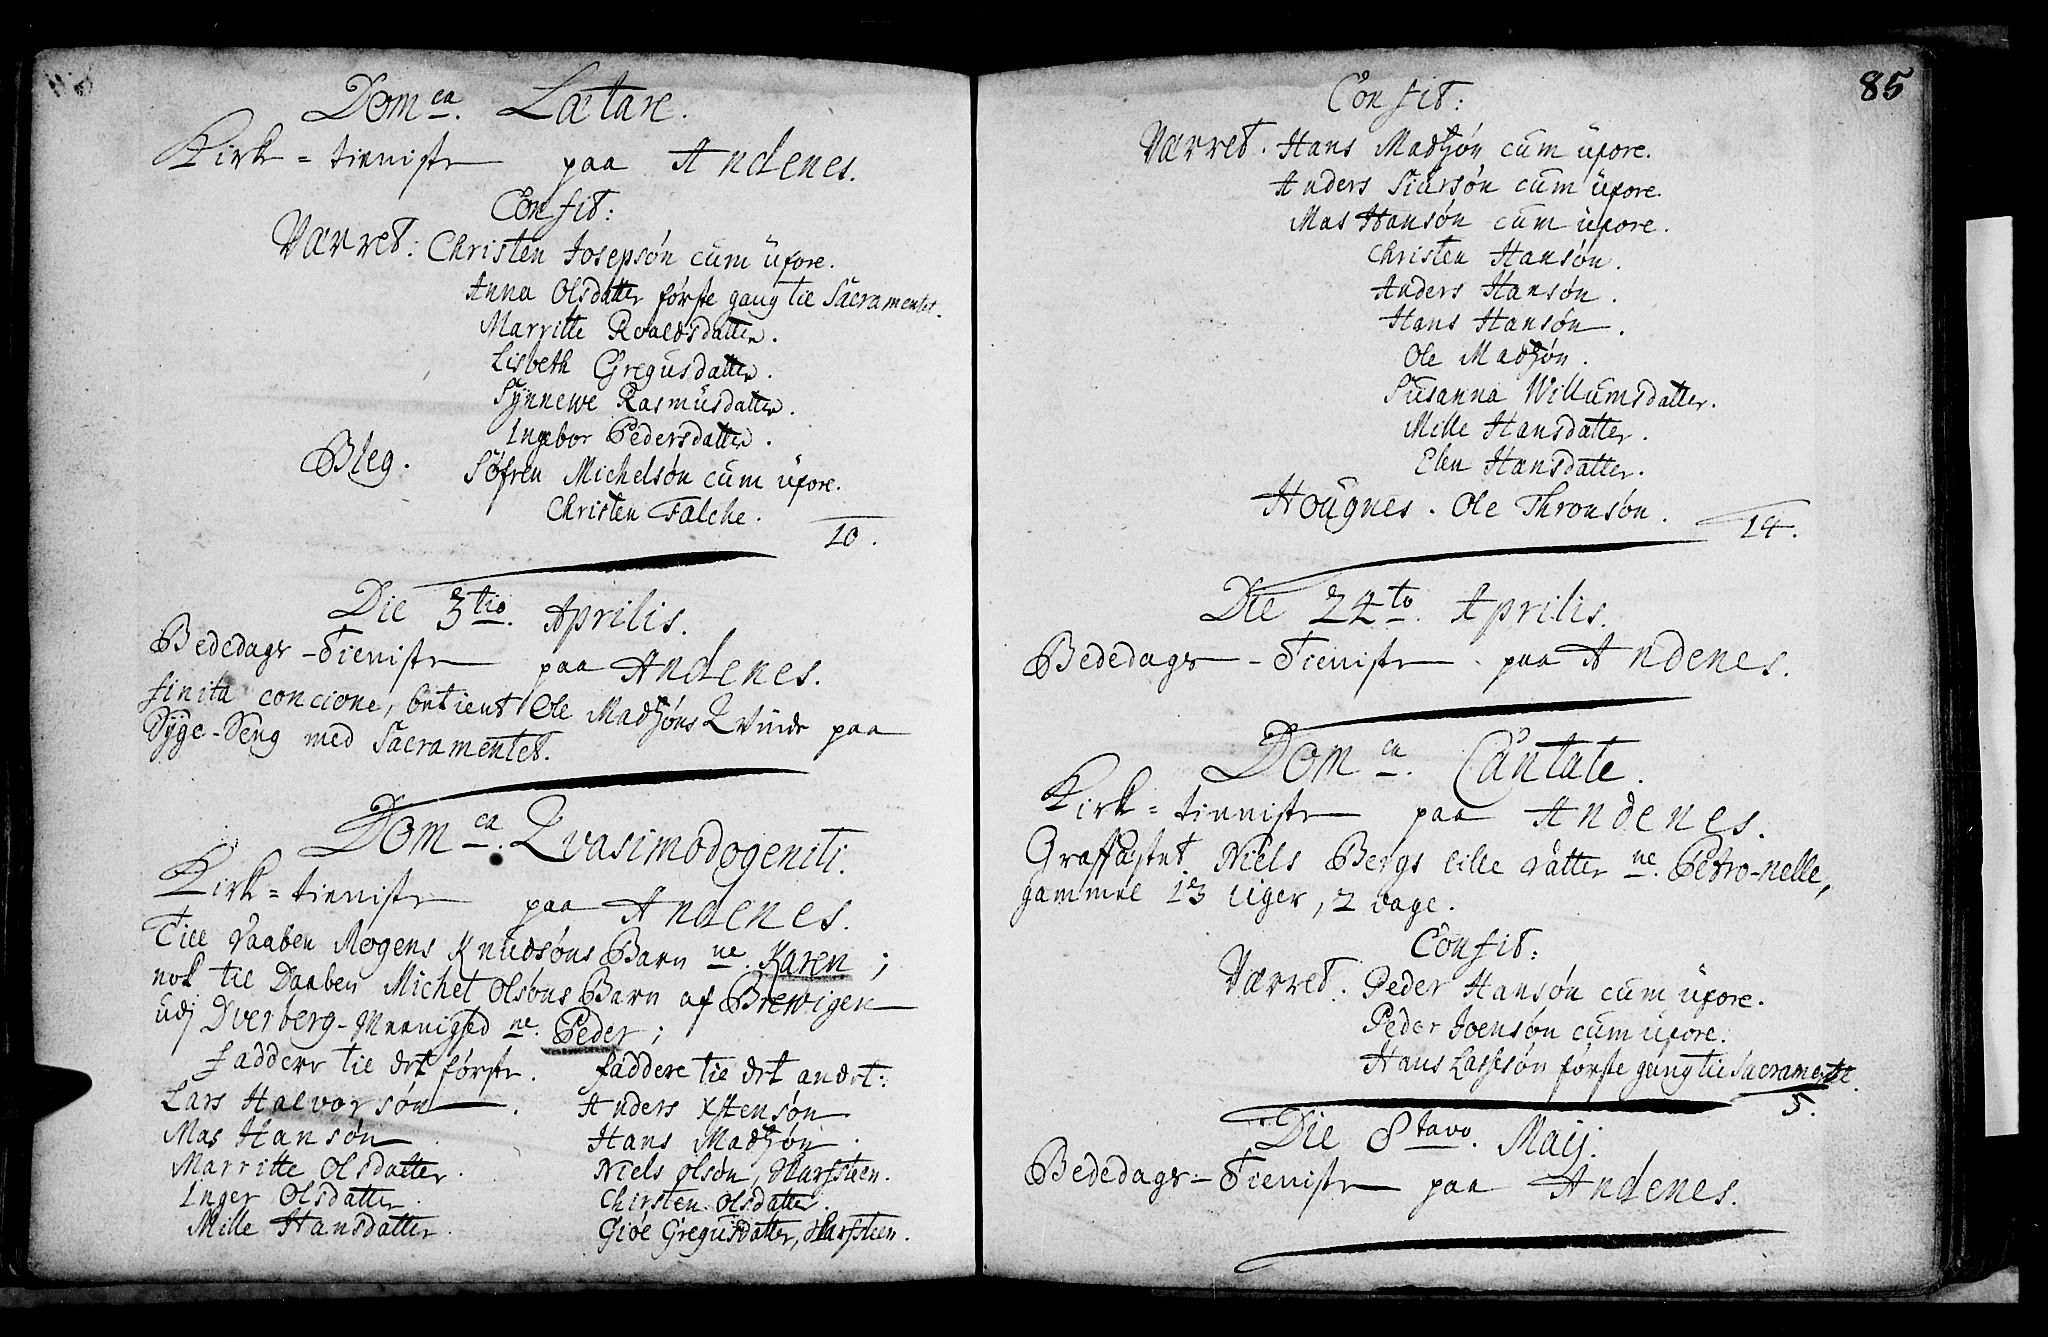 Dom ca. Lætare.
Kirk-tieniste paa Andenes.
Confit:
Værret: Christen Josepsøn cum uxore.
Anna Olsdatter første gang til Sacramentet.
Marritte Roaldsdatter.
Lisbeth Gregusdatter.
Synnewe Rasmusdatter.
Ingebor Pedersdatter.
Bleg. Søfren Michelsøn cum uxore.
Christen Falche.
10.
Die 3tio. Aprilis.
Bededags-Tieniste paa Andenes.
finita concione, betient Ole Madsøns Qvinde paa
Syge-Seng med Sacramentet.
Dom ca. Qvasimodogeniti.
Kirk-tieniste paa Andenes.
Till Daaben Mogens Knudsøns Barn ne. Karen;
nok til Daaben Michel Olsøns Barn af Brewigen
udj Dverberg-Meenighed ne. Peder;
faddere til det første.
Lars Halvorsøn.
Mas Hansøn.
Marritte Olsdatter.
Inger Olsdatter.
Mille Hansdatter.
faddere til det andet:
Anders Xstensøn
Hans Madsøn.
Niels Olsøn, Harssteen.
Chirsten Olsdatter.
Giøe Gregusdatter, Harssteen.
85
Confit:
Værret. Hans Madsøn cum uxore.
Anders Siursøn cum uxore.
Mas Hansøn cum uxore.
Christen Hansøn.
Anders Hansøn.
Hans Hansøn.
Ole Madsøn.
Susanna Willumsdatter.
Mille Hansdatter.
Elen Hansdatter.
Hougnes. Ole Thronsøn.
14.
Die 24to. Aprilis.
Bededags-Tieniste paa Andenes.
Dom ca. Cantate.
Kirk-tieniste paa Andenes.
Graffæstet Niels Bergs lille datter ne. Petro-nelle,
gammel 13 Uger, 2 dage.
Confit:
Værret. Peder Hansøn cum uxore.
Peder Joensøn cum uxore.
Hans Lassesøn første gang til Sacramentet.
5.
Die 8tavo. Maij.
Bededags-Tieniste paa Andenes.